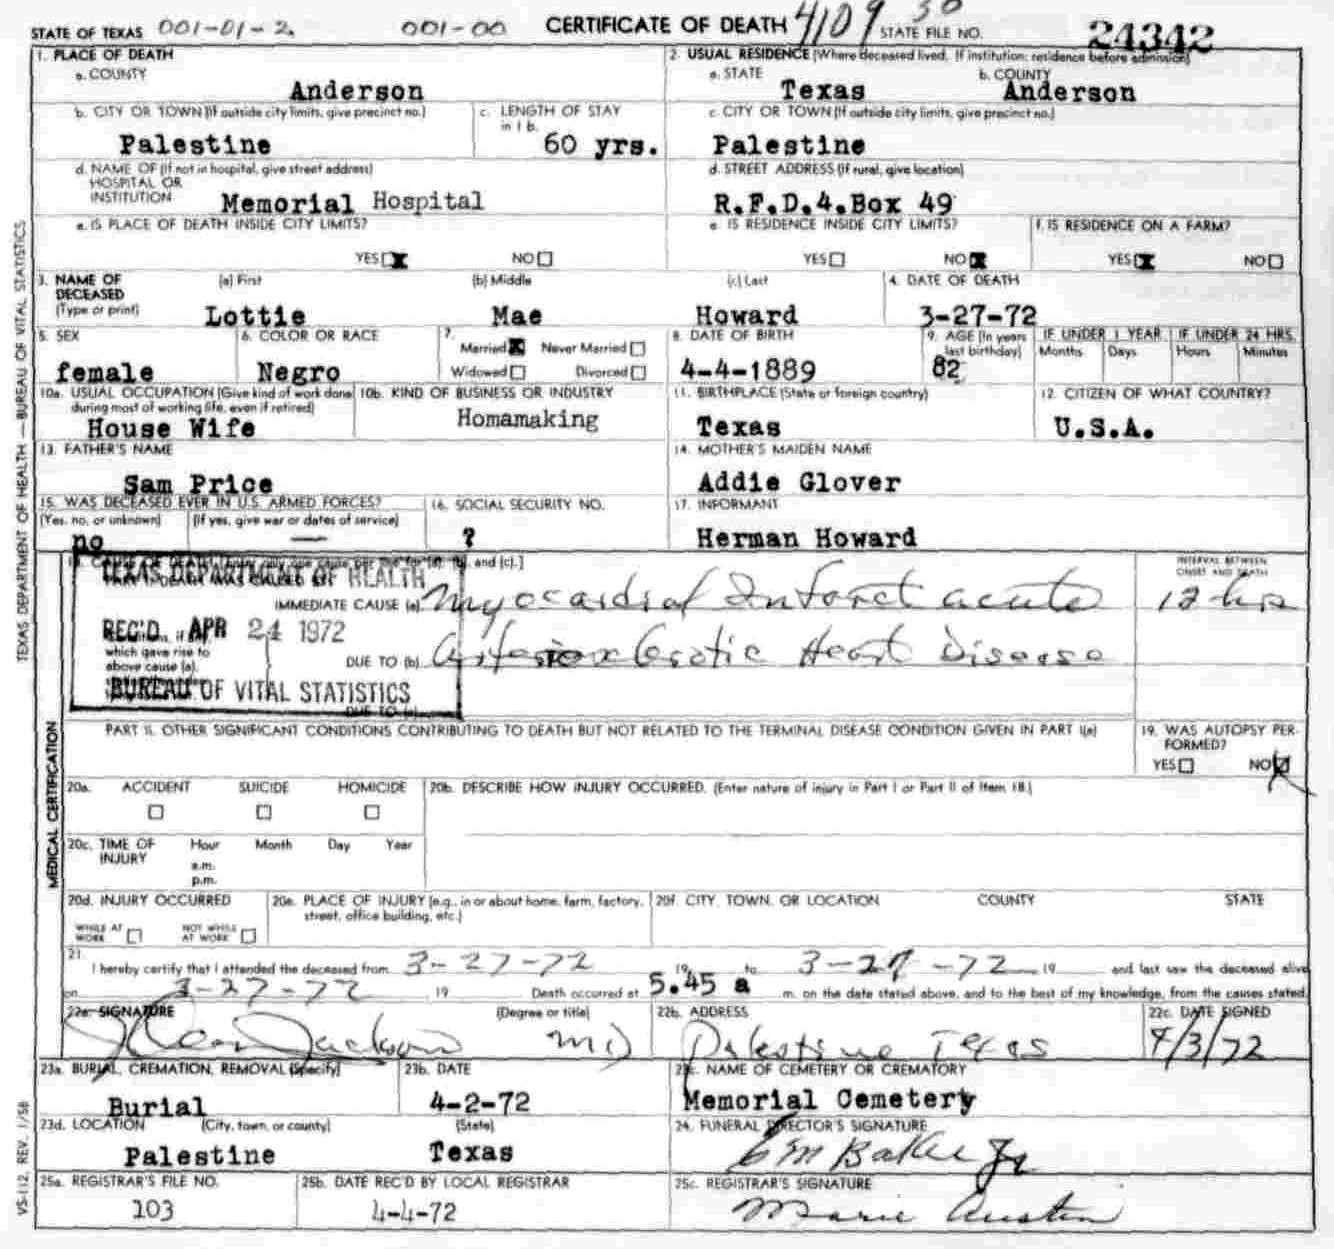 STATE OF TEXAS 001-01-2 001-00 CERTIFICATE OF DEATH 4109 30 STATE FILE NO. 24342
1. PLACE OF DEATH
a. COUNTY
Anderson
2. USUAL RESIDENCE (Where deceased lived. If institution: residence before admission)
a. STATE
Texas
b. COUNTY
Anderson
b. CITY OR TOWN (If outside city limits, give precinct no.)
Palestine
c. LENGTH OF STAY
in 1 b.
60 yrs.
c. CITY OR TOWN (If outside city limits, give precinct no.)
Palestine
d. NAME OF (If not in hospital, give street address)
HOSPITAL OR
INSTITUTION Memorial Hospital
d. STREET ADDRESS (If rural, give location)
R.F.D.4.Box 49
e. IS PLACE OF DEATH INSIDE CITY LIMITS?
YES NO
e. IS RESIDENCE INSIDE CITY LIMITS?
YES NO
f. IS RESIDENCE ON A FARM?
YES NO
3. NAME OF
DECEASED
(Type or print)
(a) First
Lottie
(b) Middle
Mae
(c) Last
Howard
4. DATE OF DEATH
3-27-72
5. SEX
female
6. COLOR OR RACE
Negro
7.
Married Never Married
Widowed Divorced
8. DATE OF BIRTH
4-4-1889
9. AGE (In years
last birthday)
82
IF UNDER 1 YEAR
Months Days
IF UNDER 24 HRS.
Hours Minutes
10a. USUAL OCCUPATION (Give kind of work done
during most of working life, even if retired)
House Wife
10b. KIND OF BUSINESS OR INDUSTRY
Homamaking
11. BIRTHPLACE (State or foreign country)
Texas
12. CITIZEN OF WHAT COUNTRY?
U.S.A.
13. FATHER'S NAME
Sam Price
14. MOTHER'S MAIDEN NAME
Addie Glover
15. WAS DECEASED EVER IN U.S. ARMED FORCES?
(Yes, no, or unknown) (If yes, give war or dates of service)
no —
16. SOCIAL SECURITY NO.
?
17. INFORMANT
Herman Howard
and (c).]
TEXAS DEPARTMENT OF HEALTH
REC'D APR 24 1972
BUREAU OF VITAL STATISTICS
IMMEDIATE CAUSE (a) Myocardial Infarct acute
INTERVAL BETWEEN
ONSET AND DEATH
12 hrs
which gave rise to
above cause (a).
DUE TO (b) Arteriosclerotic Heart Disease
DUE TO (c)
PART II. OTHER SIGNIFICANT CONDITIONS CONTRIBUTING TO DEATH BUT NOT RELATED TO THE TERMINAL DISEASE CONDITION GIVEN IN PART I(a)
19. WAS AUTOPSY PER-
FORMED?
YES NO
20a. ACCIDENT SUICIDE HOMICIDE
20b. DESCRIBE HOW INJURY OCCURRED. (Enter nature of injury in Part I or Part II of Item 18.)
20c. TIME OF
INJURY
Hour Month Day Year
a.m.
p.m.
20d. INJURY OCCURRED
WHILE AT
WORK
NOT WHILE
AT WORK
20e. PLACE OF INJURY (e.g., in or about home, farm, factory,
street, office building, etc.)
20f. CITY, TOWN, OR LOCATION COUNTY STATE
21.
I hereby certify that I attended the deceased from 3-27-72 19 to 3-27-72 19 and last saw the deceased alive
on 3-27-72 19 Death occurred at 5.45 a m. on the date stated above, and to the best of my knowledge, from the causes stated.
22a. SIGNATURE (Degree or title)
Jackson MD
22b. ADDRESS
Palestine Texas
22c. DATE SIGNED
4/3/72
23a. BURIAL, CREMATION, REMOVAL (Specify)
Burial
23b. DATE
4-2-72
23c. NAME OF CEMETERY OR CREMATORY
Memorial Cemetery
23d. LOCATION (City, town, or county) (State)
Palestine Texas
24. FUNERAL DIRECTOR'S SIGNATURE
EM Baker Jr
25a. REGISTRAR'S FILE NO.
103
25b. DATE REC'D BY LOCAL REGISTRAR
4-4-72
25c. REGISTRAR'S SIGNATURE
Marie Austin
TEXAS DEPARTMENT OF HEALTH — BUREAU OF VITAL STATISTICS
MEDICAL CERTIFICATION
VS-112 REV. 1/58